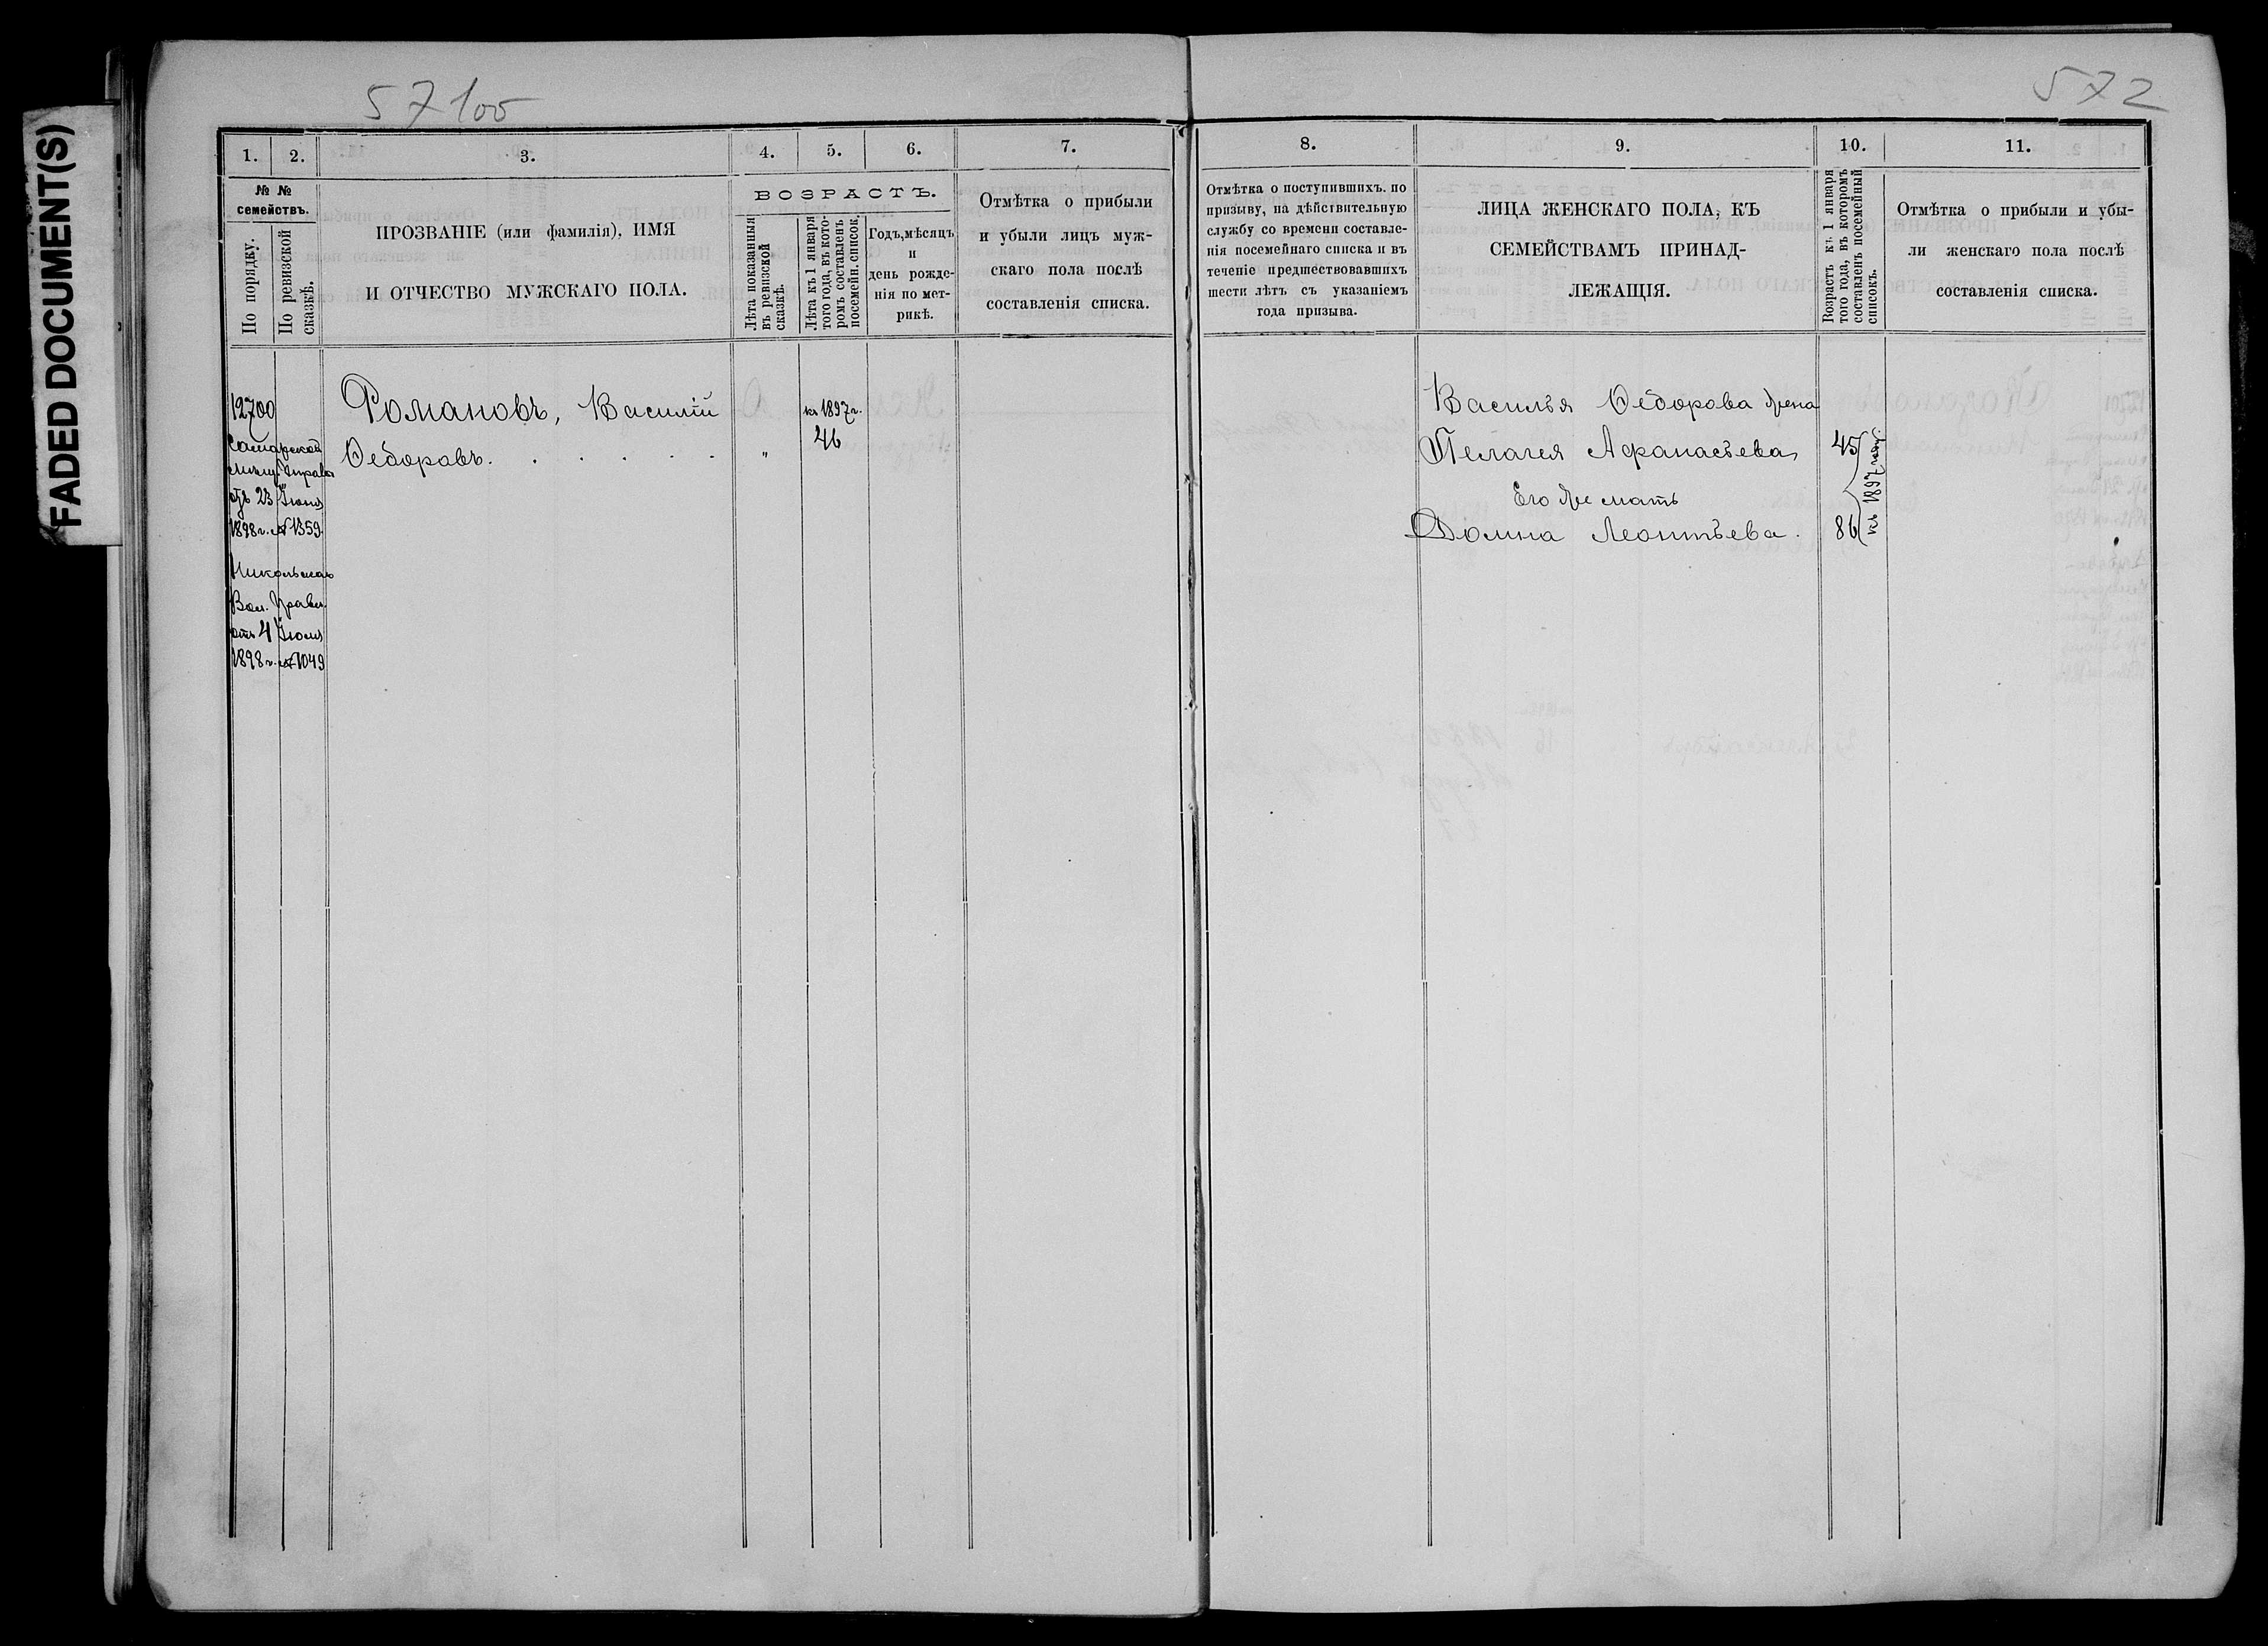 FADED DOCUMENT(S)
571об
572
1. 2. 3. 4. 5. 6. 7.
№ №
семействъ.
По порядку.
По ревизской
сказкѣ.
ПРОЗВАНІЕ (или фамилія), ИМЯ
И ОТЧЕСТВО МУЖСКАГО ПОЛА.
ВОЗРАСТЪ.
Лѣта показанныя
въ ревизской
сказкѣ.
Лѣта къ 1 января
того года, въ кото-
ромъ составленъ
посемейн. список.
Годъ, мѣсяцъ
и
день рожде-
нія по мет-
рикѣ.
Отмѣтка о прибыли
и убыли лицъ муж-
скаго пола послѣ
составленія списка.
12700
Самарской
мѣщ. Управы
отъ 23 Іюня
1898 г. № 1359.
Никольскаго
Вол. Правл.
отъ 4 Іюля
1898 г. № 1049
Романовъ, Василій
Ѳедоровъ. . . . . .
"
къ 1897 г.
46
8. 9. 10. 11.
Отмѣтка о поступившихъ. по
призыву, на дѣйствительную
службу со времени составле-
нія посемейнаго списка и въ
теченіе предшествовавшихъ
шести лѣтъ съ указаніемъ
года призыва.
ЛИЦА ЖЕНСКАГО ПОЛА, КЪ
СЕМЕЙСТВАМЪ ПРИНАД-
ЛЕЖАЩІЯ.
Возрастъ къ 1 января
того года, въ которомъ
составленъ посемейный
списокъ.
Отмѣтка о прибыли и убы-
ли женскаго пола послѣ
составленія списка.
Василья Ѳедорова жена
Пелагея Афанасьева 45
Его же мать
Домна Леонтьева. 86
къ 1897 году.